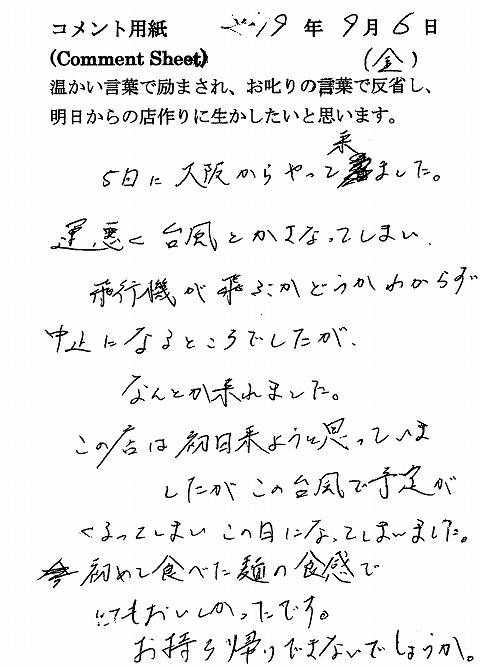 コメント用紙 19年9月6日
(Comment Sheet) (金)
温かい言葉で励まされ、お叱りの言葉で反省し、
明日からの店作りに生かしたいと思います。
5日に大阪からやって来ました。
運悪く台風とかさなってしまい、
飛行機が飛ぶかどうかわからず
中止になるところでしたが、
なんとか来れました。
この店は初日来ようと思っていま
したがこの台風で予定が
くるってしまいこの日になってしまいました。
初めて食べた麺の食感で
とてもおいしかったです。
お持ち帰りできないでしょうか。